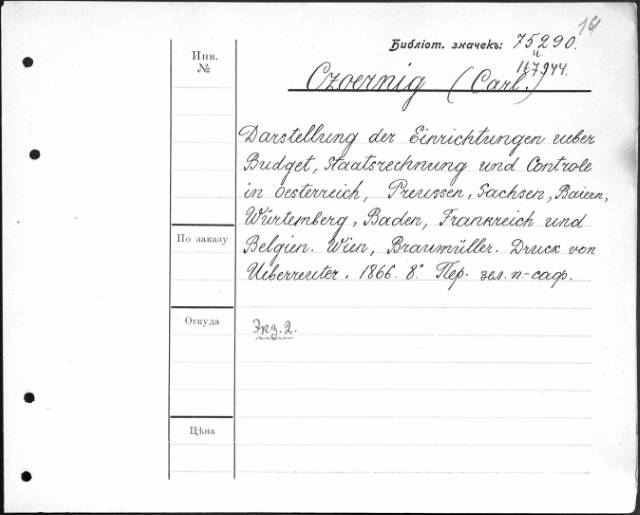 15
Библіот. значекъ: 75290.
и
167944.
Инв.
№
Czoernig (Carl.)
Darstellung der Einrichtungen ueber
Budget, Staatsrechnung und Controle
in Oesterreich, Preussen, Sachsen, Baiern,
Würtemberg, Baden, Frankreich und
Belgien. Wien, Braumüller. Druck von
Ueberreuter. 1866. 8.° Пер. зел. п-саф.
По заказу
Откуда
Экз. 2.
Цѣна